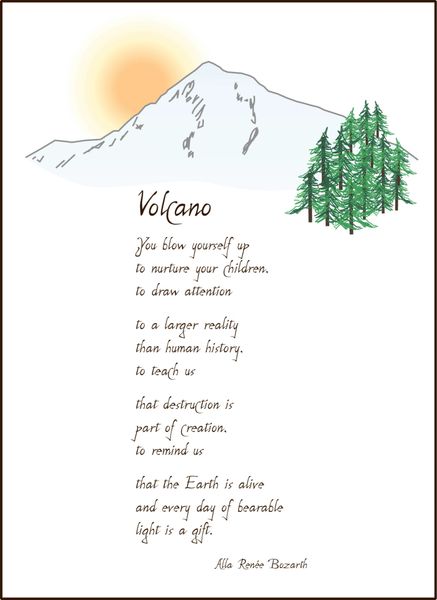 Volcano
You blow yourself up
to nurture your children,
to draw attention
to a larger reality
than human history,
to teach us
that destruction is
part of creation,
to remind us
that the Earth is alive
and every day of bearable
light is a gift.
Alla Renée Bozarth